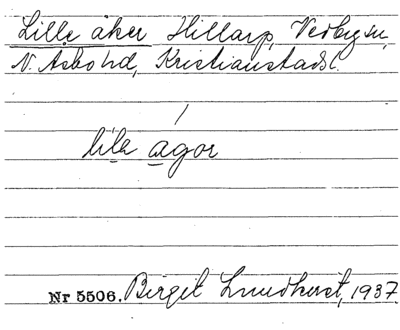 Lille åker Hillarp, Vedbysn,
N. Åsbo hd, Kristianstads l.
lila agor
Nr 5506. Birgit Lundkvist, 1937